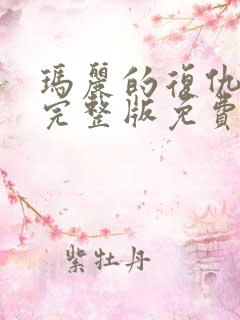 瑪麗的復仇
完整版免費
紫牡丹